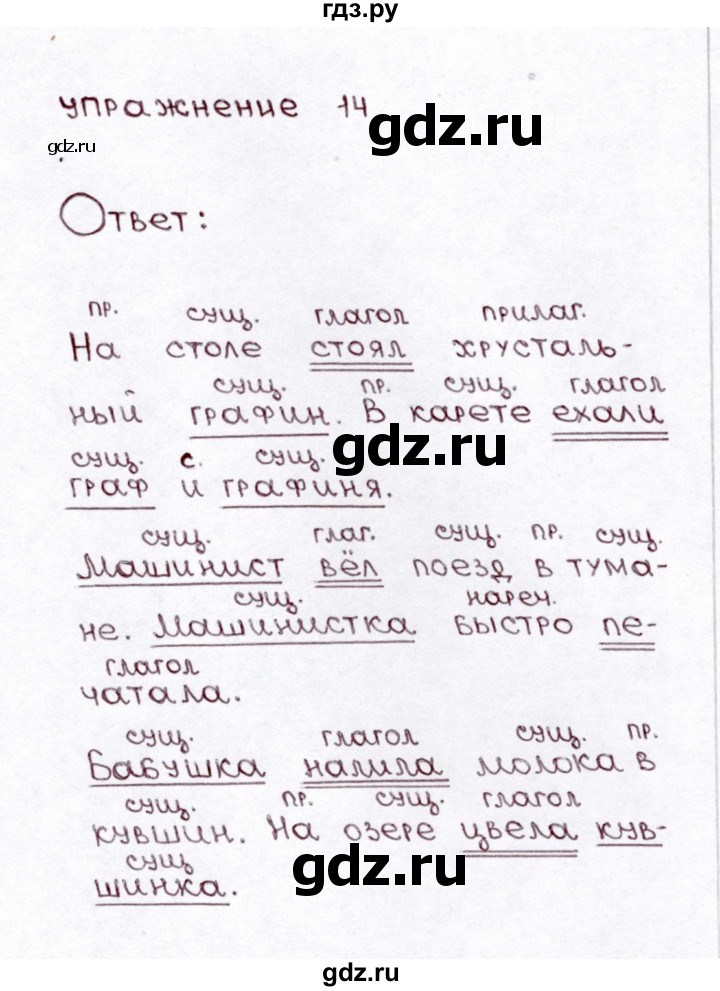 гдз.ру
упражнение 14
gdz.ru
gdz.ru
Ответ:
пр. сущ. глагол прилаг.
На столе стоял хрусталь-
сущ. пр. сущ. глагол
ный графин. В карете ехали
gdz.ru
сущ. с. сущ.
граф и графиня.
сущ. глаг. сущ. пр. сущ.
Машинист вёл поезд в тума-
сущ. нареч.
не. Машинистка быстро пе-
глагол
чатала.
сущ. глагол сущ. пр.
Бабушка налила молока в
сущ. пр. сущ. глагол
кувшин. На озере цвела кув-
сущ
шинка.
gdz.ru
gdz.ru